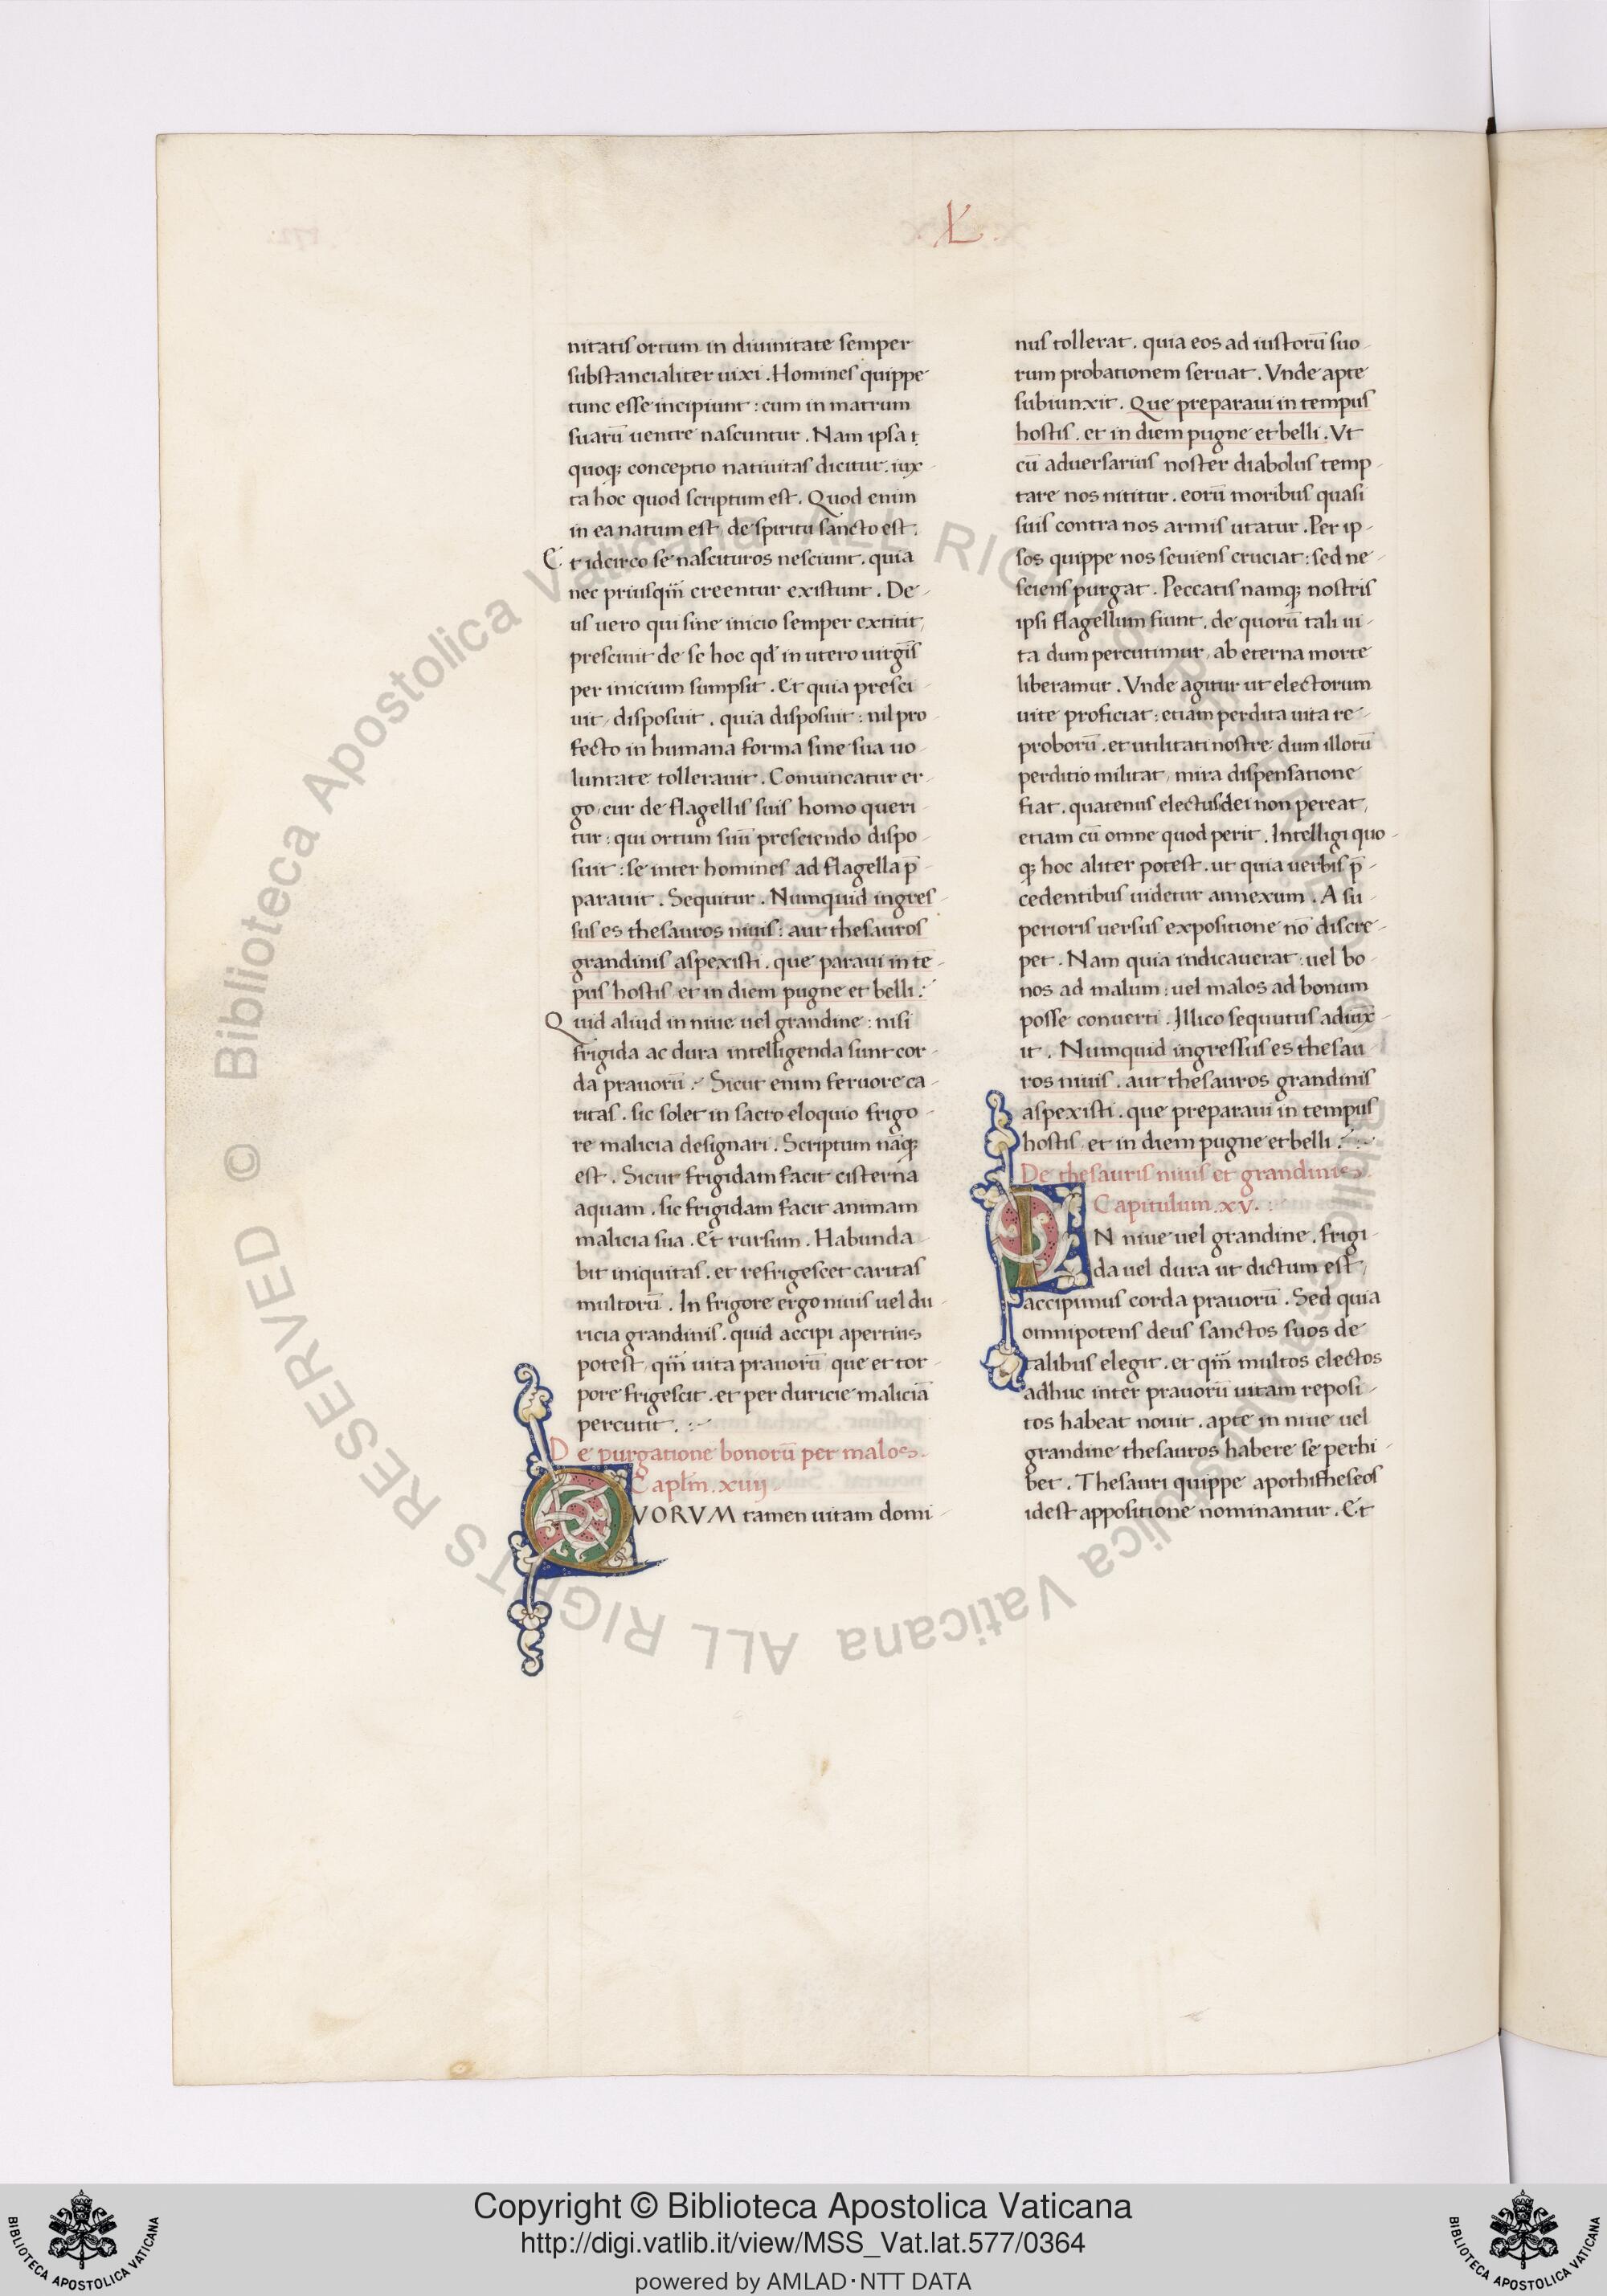 .L.
nitatis ortum in diuinitate semper
substancialiter uixi . Homines quippe
tunc esse incipiunt : cum in matrum
suarū uentre nascuntur . Nam ipsa t
quoq; conceptio natiuitas dicitur . iux-
ta hoc quod scriptum est . Quod enim
in ea natum est , de spiritu sancto est .
Et idcirco se nascituros nesciunt . quia
nec priusqm̄ creentur existunt . De-
us uero qui sine inicio semper extitit ,
presciuit de se hoc qd' in utero uirgīs
per inicium sumpsit . Et quia presci-
uit , disposuit . quia disposuit : nil pro
fecto in humana forma sine sua uo-
luntate tollerauit . Conuincatur er-
go , cur de flagellis suis homo queri-
tur : qui ortum suū presciendo dispo-
suit : se inter homines ad flagella p̄-
parauit . Sequitur . Numquid ingres-
sus es thesauros niuis : aut thesauros
grandinis aspexisti . que paraui in tē-
pus hostis , et in diem pugne et belli :
Quid aliud in niue uel grandine : nisi
frigida ac dura intelligenda sunt cor-
da prauorū : Sicut enim feruore ca-
ritas . sic solet in sacro eloquio frigo-
re malicia designari . Scriptum nāq;
est . Sicut frigidam facit cisterna
aquam . sic frigidam facit animam
malicia sua . Et rursum . Habunda-
bit iniquitas . et refrigescet caritas
multorū . In frigore ergo niuis uel du-
ricia grandinis . quid accipi apertius
potest , qm̄ uita prauorū que et tor-
pore frigescit . et per duricie maliciā
percutit . :-
De purgatione bonorū per malos .
Caplm̄ . xiiij .
QVORVM tamen uitam domi-
nus tollerat . quia eos ad iustorū suo-
rum probationem seruat . Vnde apte
subiunxit . Que preparaui in tempus
hostis . et in diem pugne et belli . Vt
cū aduersarius noster diabolus temp-
tare nos nititur . eorū moribus quasi
suis contra nos armis utatur . Per ip-
sos quippe nos seuiens cruciat : sed ne-
sciens purgat . Peccatis namq; nostris
ipsi flagellum fiunt . de quorū tali ui-
ta dum percutimur , ab eterna morte
liberamur . Vnde agitur ut electorum
uite proficiat : etiam perdita uita re-
proborū . et utilitati nostre dum illorū
perditio militat , mira dispensatione
fiat . quatenus electus dei non pereat ,
etiam cū omne quod perit . Intelligi quo-
q; hoc aliter potest . ut quia uerbis p̄-
cedentibus uidetur annexum . A su-
perioris uersus expositione nō discre-
pet . Nam quia indicauerat : uel bo-
nos ad malum : uel malos ad bonum
posse conuerti . Illico sequutus adiūx-
it . Numquid ingressus es thesau
ros niuis . aut thesauros grandinis
aspexisti . que preparaui in tempus
hostis , et in diem pugne et belli : -
De thesauris niuis et grandinis .
Capitulum . xv . :
IN niue uel grandine . frigi-
da uel dura ut dictum est ,
accipimus corda prauorū . Sed quia
omnipotens deus sanctos suos de
talibus elegit . et qm̄ multos electos
adhuc inter prauorū uitam reposi-
tos habeat nouit . apte in niue uel
grandine thesauros habere se perhi-
bet . Thesauri quippe apothitheseos
idest appositione nominantur . Et
© Biblioteca Apostolica Vaticana ALL RIGHTS RESERVED
Copyright © Biblioteca Apostolica Vaticana
http://digi.vatlib.it/view/MSS_Vat.lat.577/0364
powered by AMLAD·NTT DATA
BIBLIOTECA APOSTOLICA VATICANA
BIBLIOTECA APOSTOLICA VATICANA